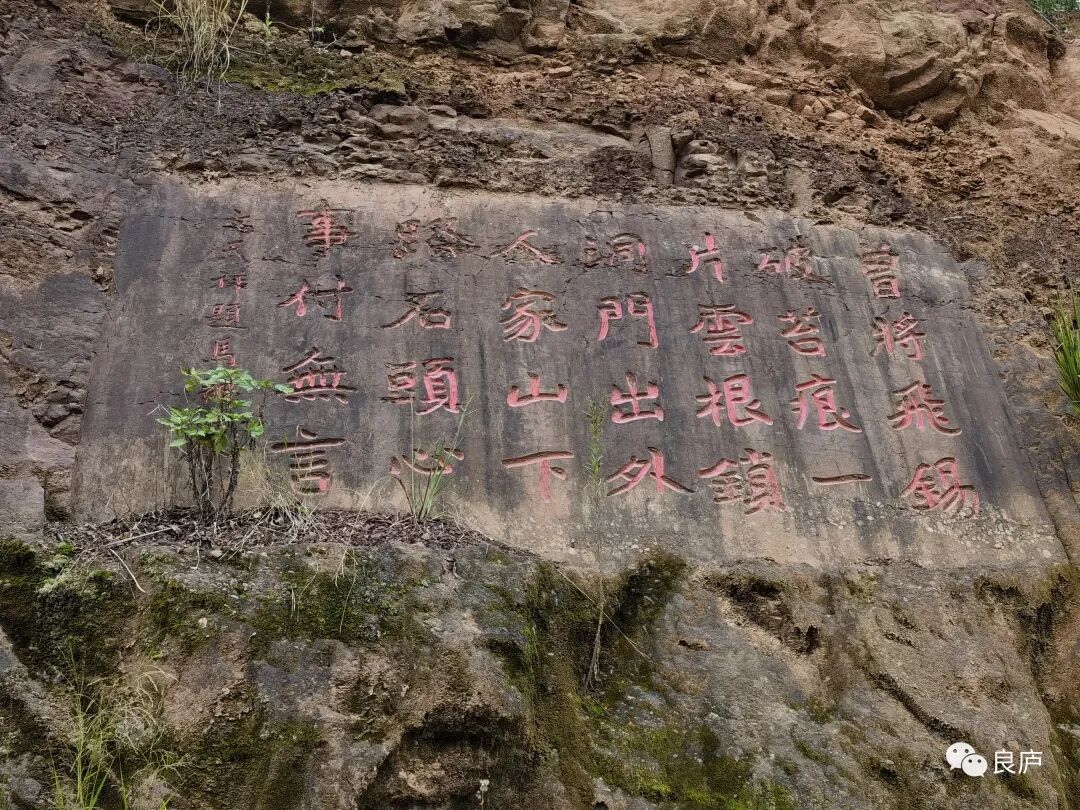 曾將飛錫
破苔痕一
片雲根鎖
洞門出外
人家山下
路石頭心
事付無言
文天祥題馬